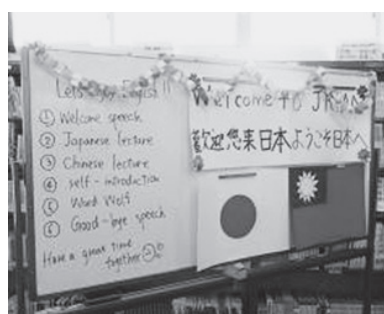 Let's enjoy English!!
① Welcome speech
② Japanese lecture
③ Chinese lecture
④ self-introduction
⑤ Word Wolf
⑥ Good-bye speech
Have a great time
together
Welcome to
歡迎您来日本ようこそ日本へ